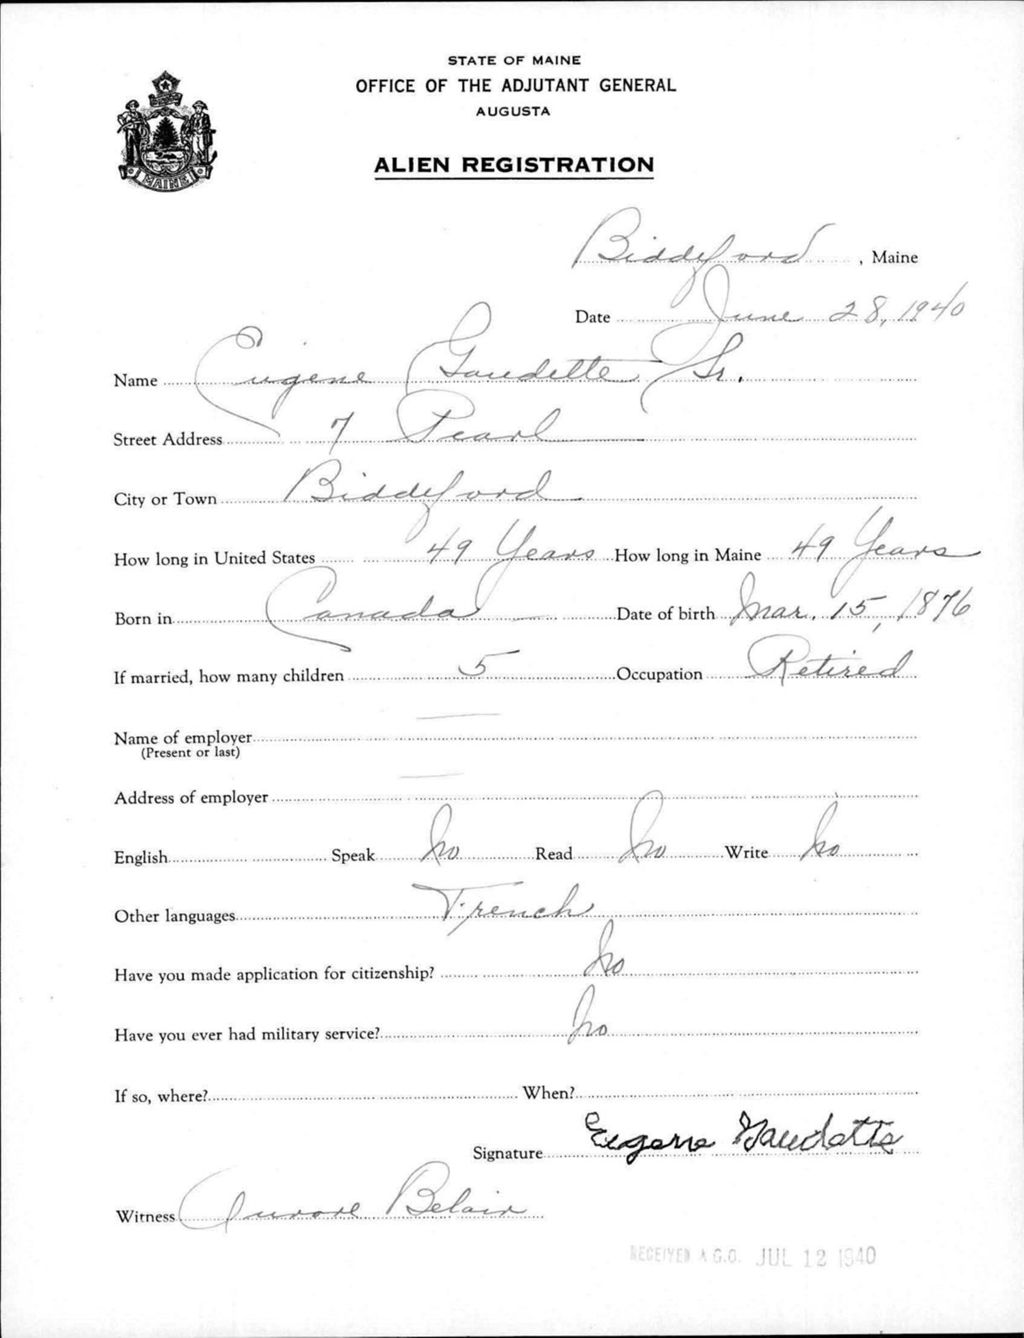 STATE OF MAINE
OFFICE OF THE ADJUTANT GENERAL
AUGUSTA
ALIEN REGISTRATION
MAINE
Biddeford, Maine
Date June 28, 1940
Name Eugene Gaudette Sr.
Street Address 7 Pearl
City or Town Biddeford
How long in United States 49 Years How long in Maine 49 Years
Born in Canada Date of birth Mar. 15, 1876
If married, how many children 5 Occupation Retired
Name of employer —
(Present or last)
Address of employer —
English Speak No Read No Write No
Other languages French
Have you made application for citizenship? No
Have you ever had military service? No
If so, where? When?
Signature Eugene Gaudette
Witness Aurore Belair
RECEIVED A.G.O. JUL 12 1940